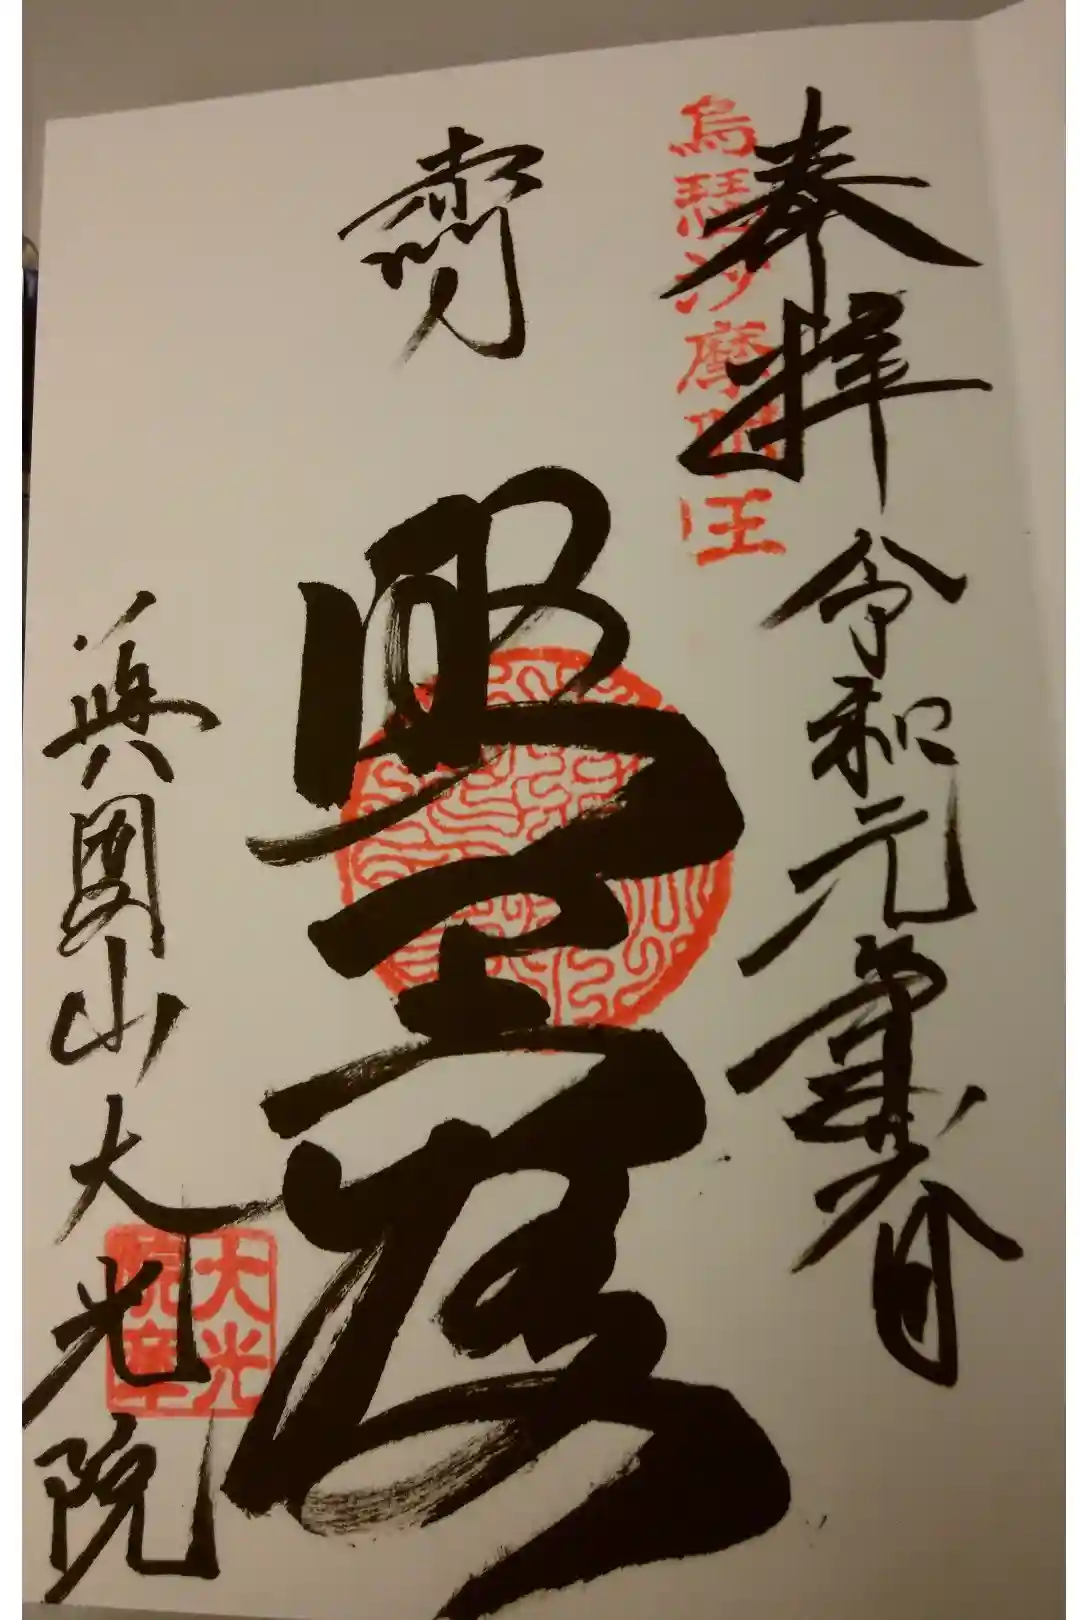 烏瑟沙摩明王
奉拝 令和元年
赤門
明王殿
興國山大光院
大光
院章